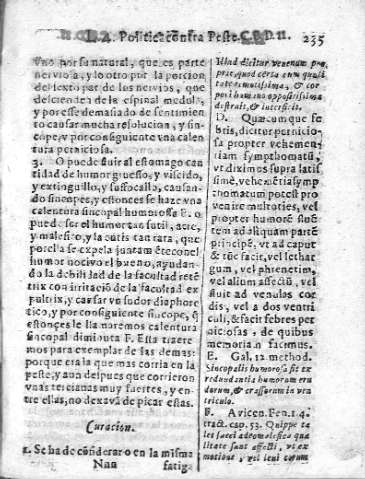 L.2. Politica contra Peste
235
vno por su natural, que es parte
neruio a, y lo otro por la porcion
del texto par de los neruios, que
desciende de la espinal medula,
y por esse demasiado de sentimien
to causar mucha resolucion, y sin-
cope, y por consiguiente vna calen
tura perniciosa.
3. O puede fluir al estomago can
tidad de humor gruesso, y viscido,
y extinguillo, y suffocallo, causan-
do sincopes, y estonces se haze vna
calentura sincopal humorosa E. o
puede ser el humor tan sutil, acre,
y malefico, y la cutis tan rara, que
por ella se expela juntamēte con el
humor nociuo el bueno, ayudan-
do la debilidad de la facultad retē
trix con irritaciō de la facultad ex
pultrix, y causar vn sudor diaphore
tico, y por consiguiente sincope, q̃
estonçes le llamaremos calentura
sincopal diminuta F. Esta traere
mos para exemplar de las demas:
porque era la que mas corria en la
peste, y aun despues que corrieron
vnas tercianas muy fuertes, y en-
tre ellas, no dexaua de picar estas.
Curacion.
1. Se ha de cōsiderar o en la misma
Nnn
fatiga
Illud dicitur venenum pro
prie, quod certa cum quali
tate remotissima, & cor
pori humano oppositissima
distrait, & interficit.
D. Quæcumque fe
bris, dicitur pernicio
sa propter vehemen
tiam symptomatū,
vt diximus supra latis
simè, vehemētia symp
thomatum potest pro
uenire multoties, vel
propter humorē fluē
tem ad aliquam partē
principē, vt ad caput
& tūc facit, vel lethar
gum, vel phrenetim,
vel alium affectū, vel
fluit ad venulas cor
dis, vel a dos ventri
culi, & facit febres per
niciosas, de quibus
memoriam facimus.
E. Gal. 12 method.
Sincopalis humorosa fit ex
redundantia humorum cru
dorum, & crassorum in ven
triculo.
F. Auicen. Fen. 1. 4.
tract. cap. 53. Quippe ta
les succi adeo malefica qua
litate sunt affecti, vt ex
motibus, vel leui corum